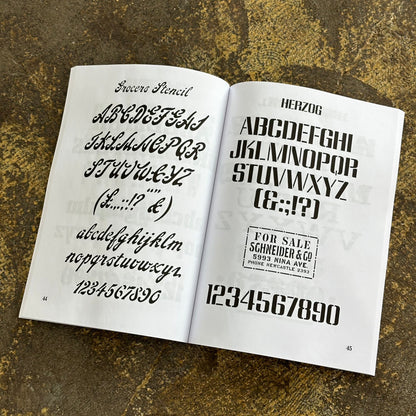 Grocers Stencil
ABCDEFGHI
JKLMNOPQR
STUVWXYZ
(£.,:;!? “” &)
abcdefghijklm
nopqrstuvwxyz
1234567890
44
HERZOG
ABCDEFGHI
JKLMNOPQR
STUVWXYZ
(&:;!?)
FOR SALE
SCHNEIDER & CO
5993 NINA AVE.
PHONE NEWCASTLE 2393
1234567890
45